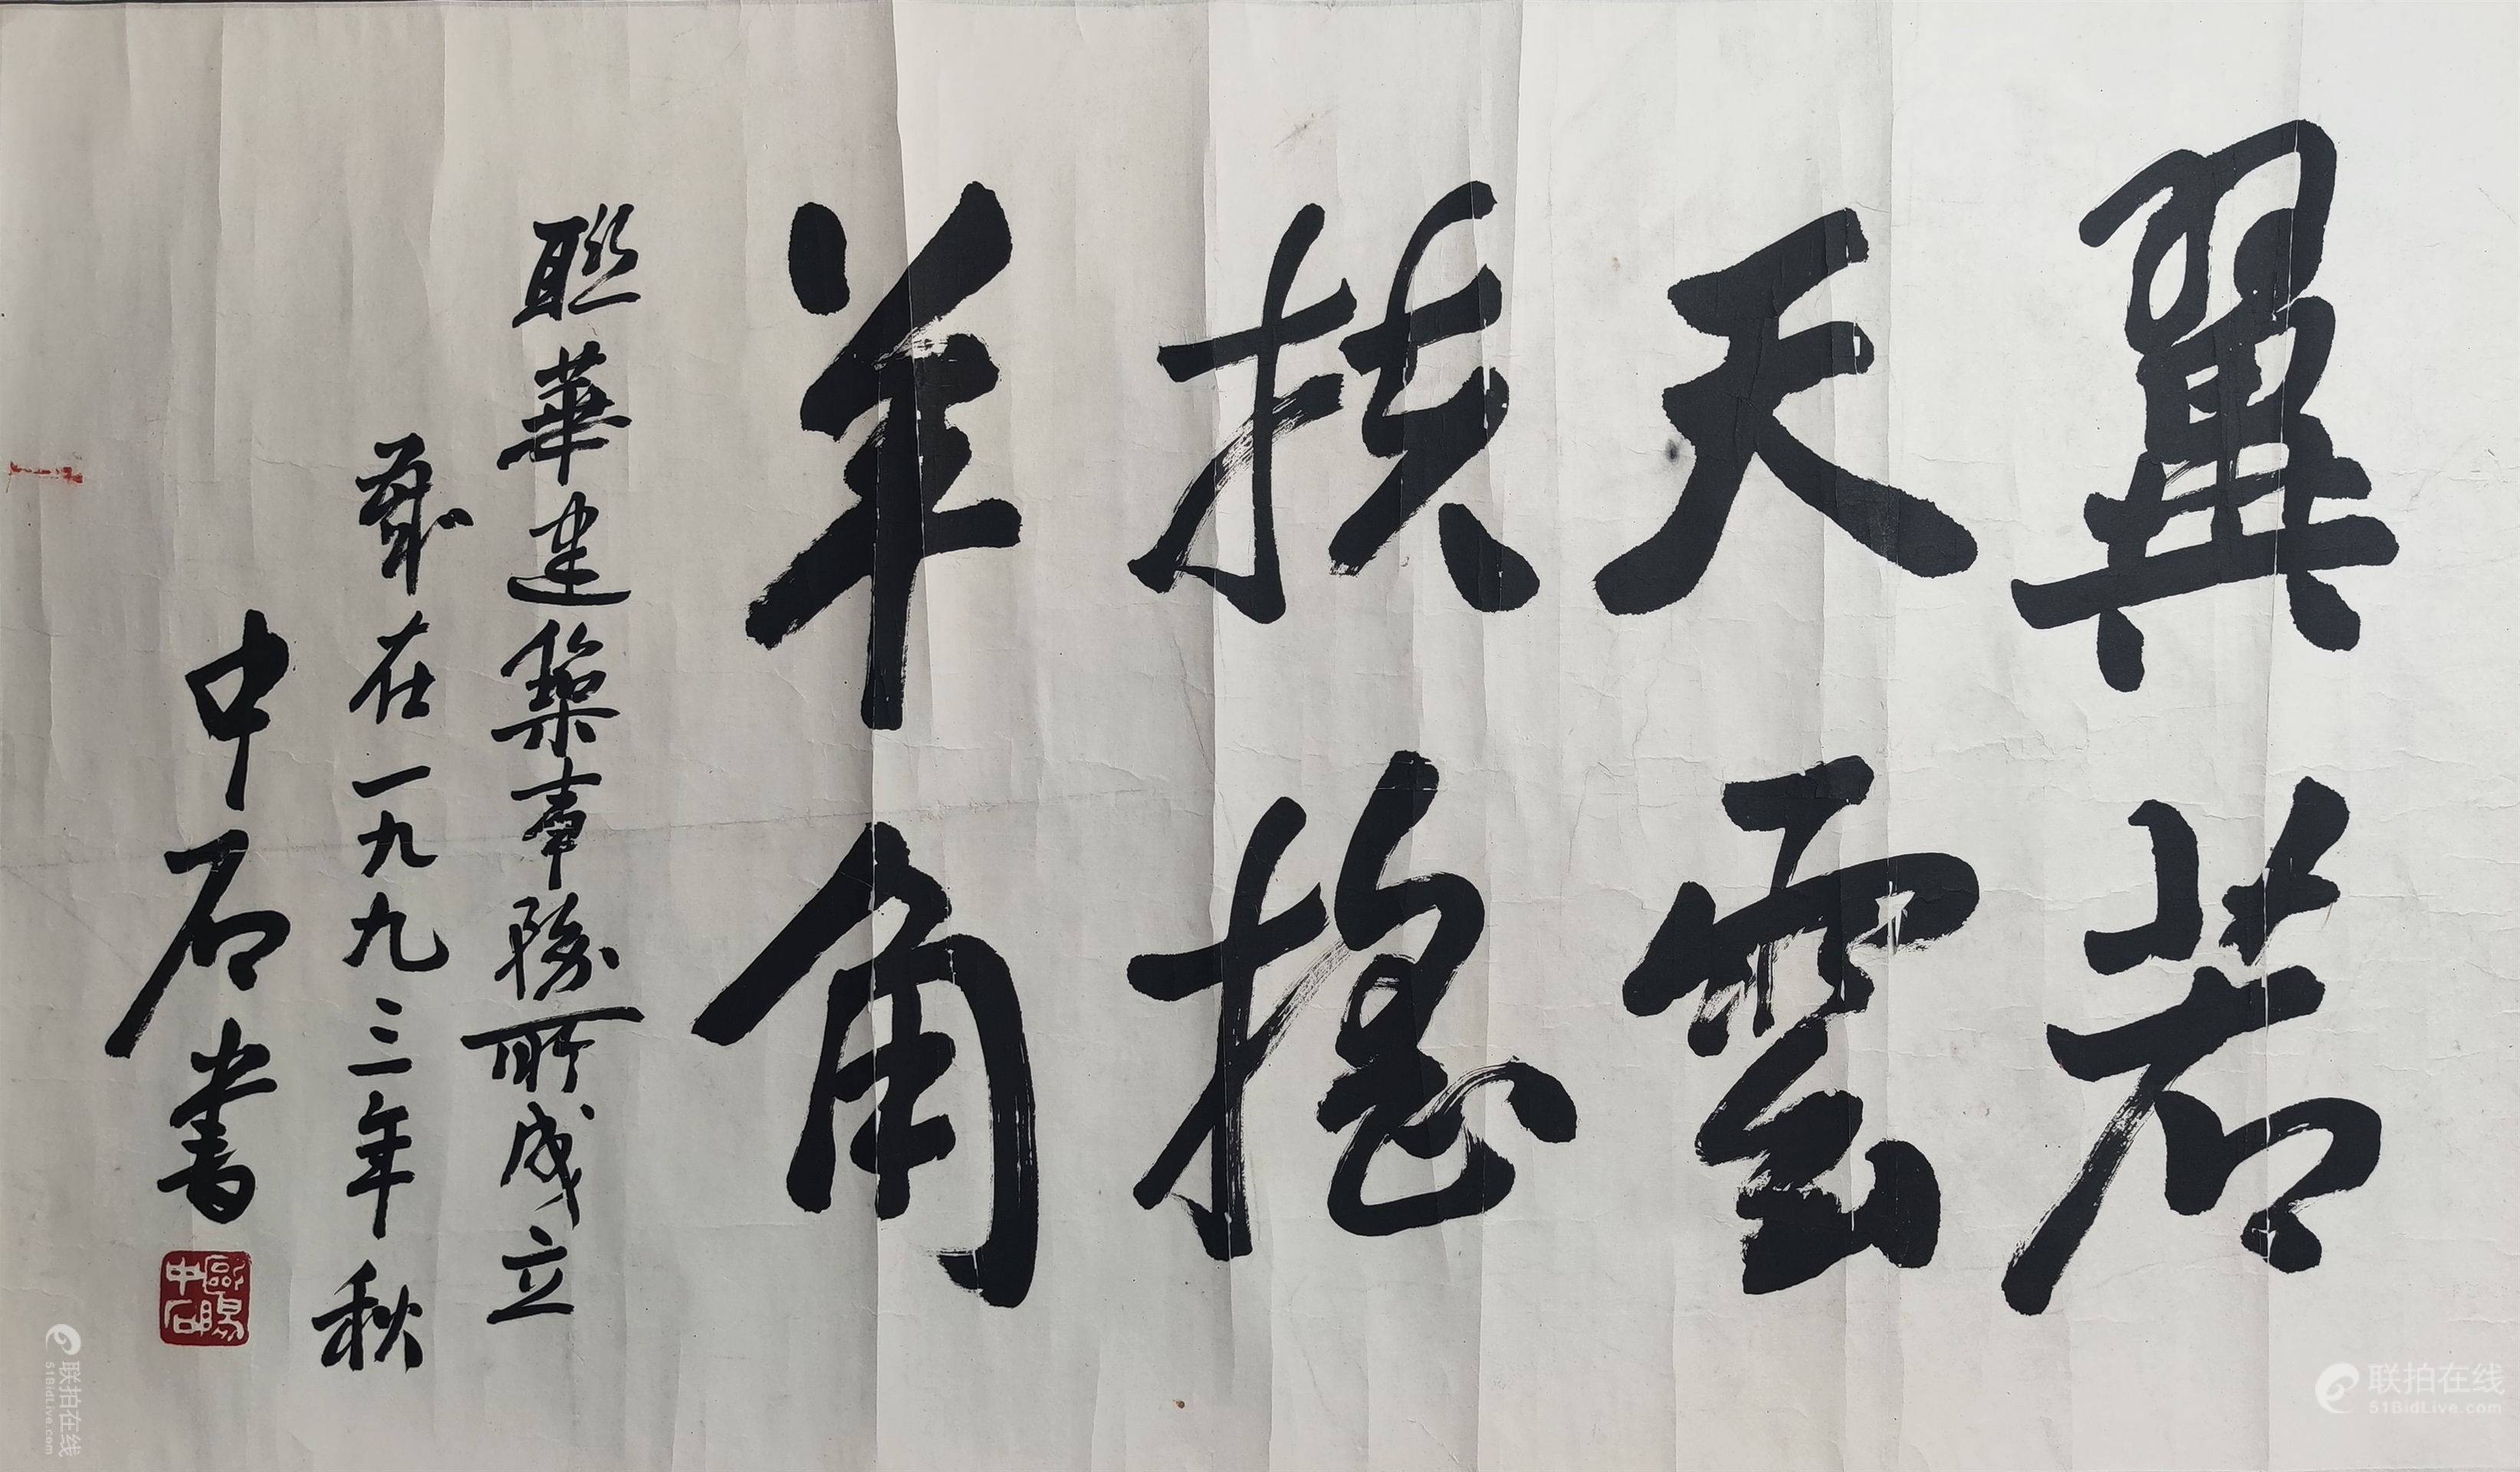 翼若
天雲
扶搖
羊角
聯華建築事務所成立
歲在一九九三年秋
中石書
歐陽
中石
联拍在线
51BidLive.com
联拍在线
51BidLive.com